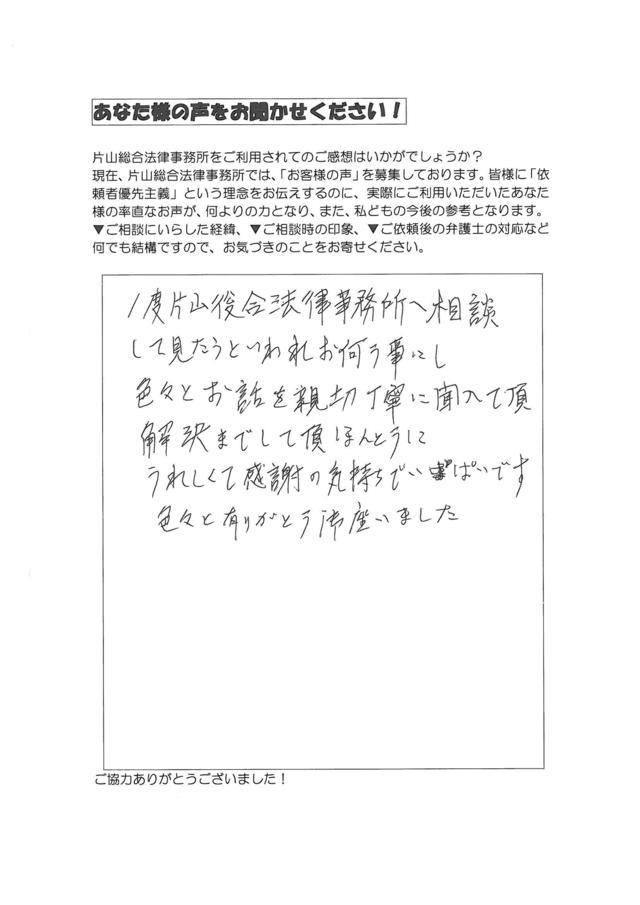 あなた様の声をお聞かせください！
片山総合法律事務所をご利用されてのご感想はいかがでしょうか？
現在、片山総合法律事務所では、「お客様の声」を募集しております。皆様に「依
頼者優先主義」という理念をお伝えするのに、実際にご利用いただいたあなた
様の率直なお声が、何よりの力となり、また、私どもの今後の参考となります。
▼ご相談にいらした経緯、▼ご相談時の印象、▼ご依頼後の弁護士の対応など
何でも結構ですので、お気づきのことをお寄せください。
1度片山総合法律事務所へ相談
して見たらといわれお伺う事にし
色々とお話を親切丁寧に聞入て頂
解決までして頂ほんとうに
うれしくて感謝の気持ちでいぱいです
色々と有りがとう御座いました
ご協力ありがとうございました！